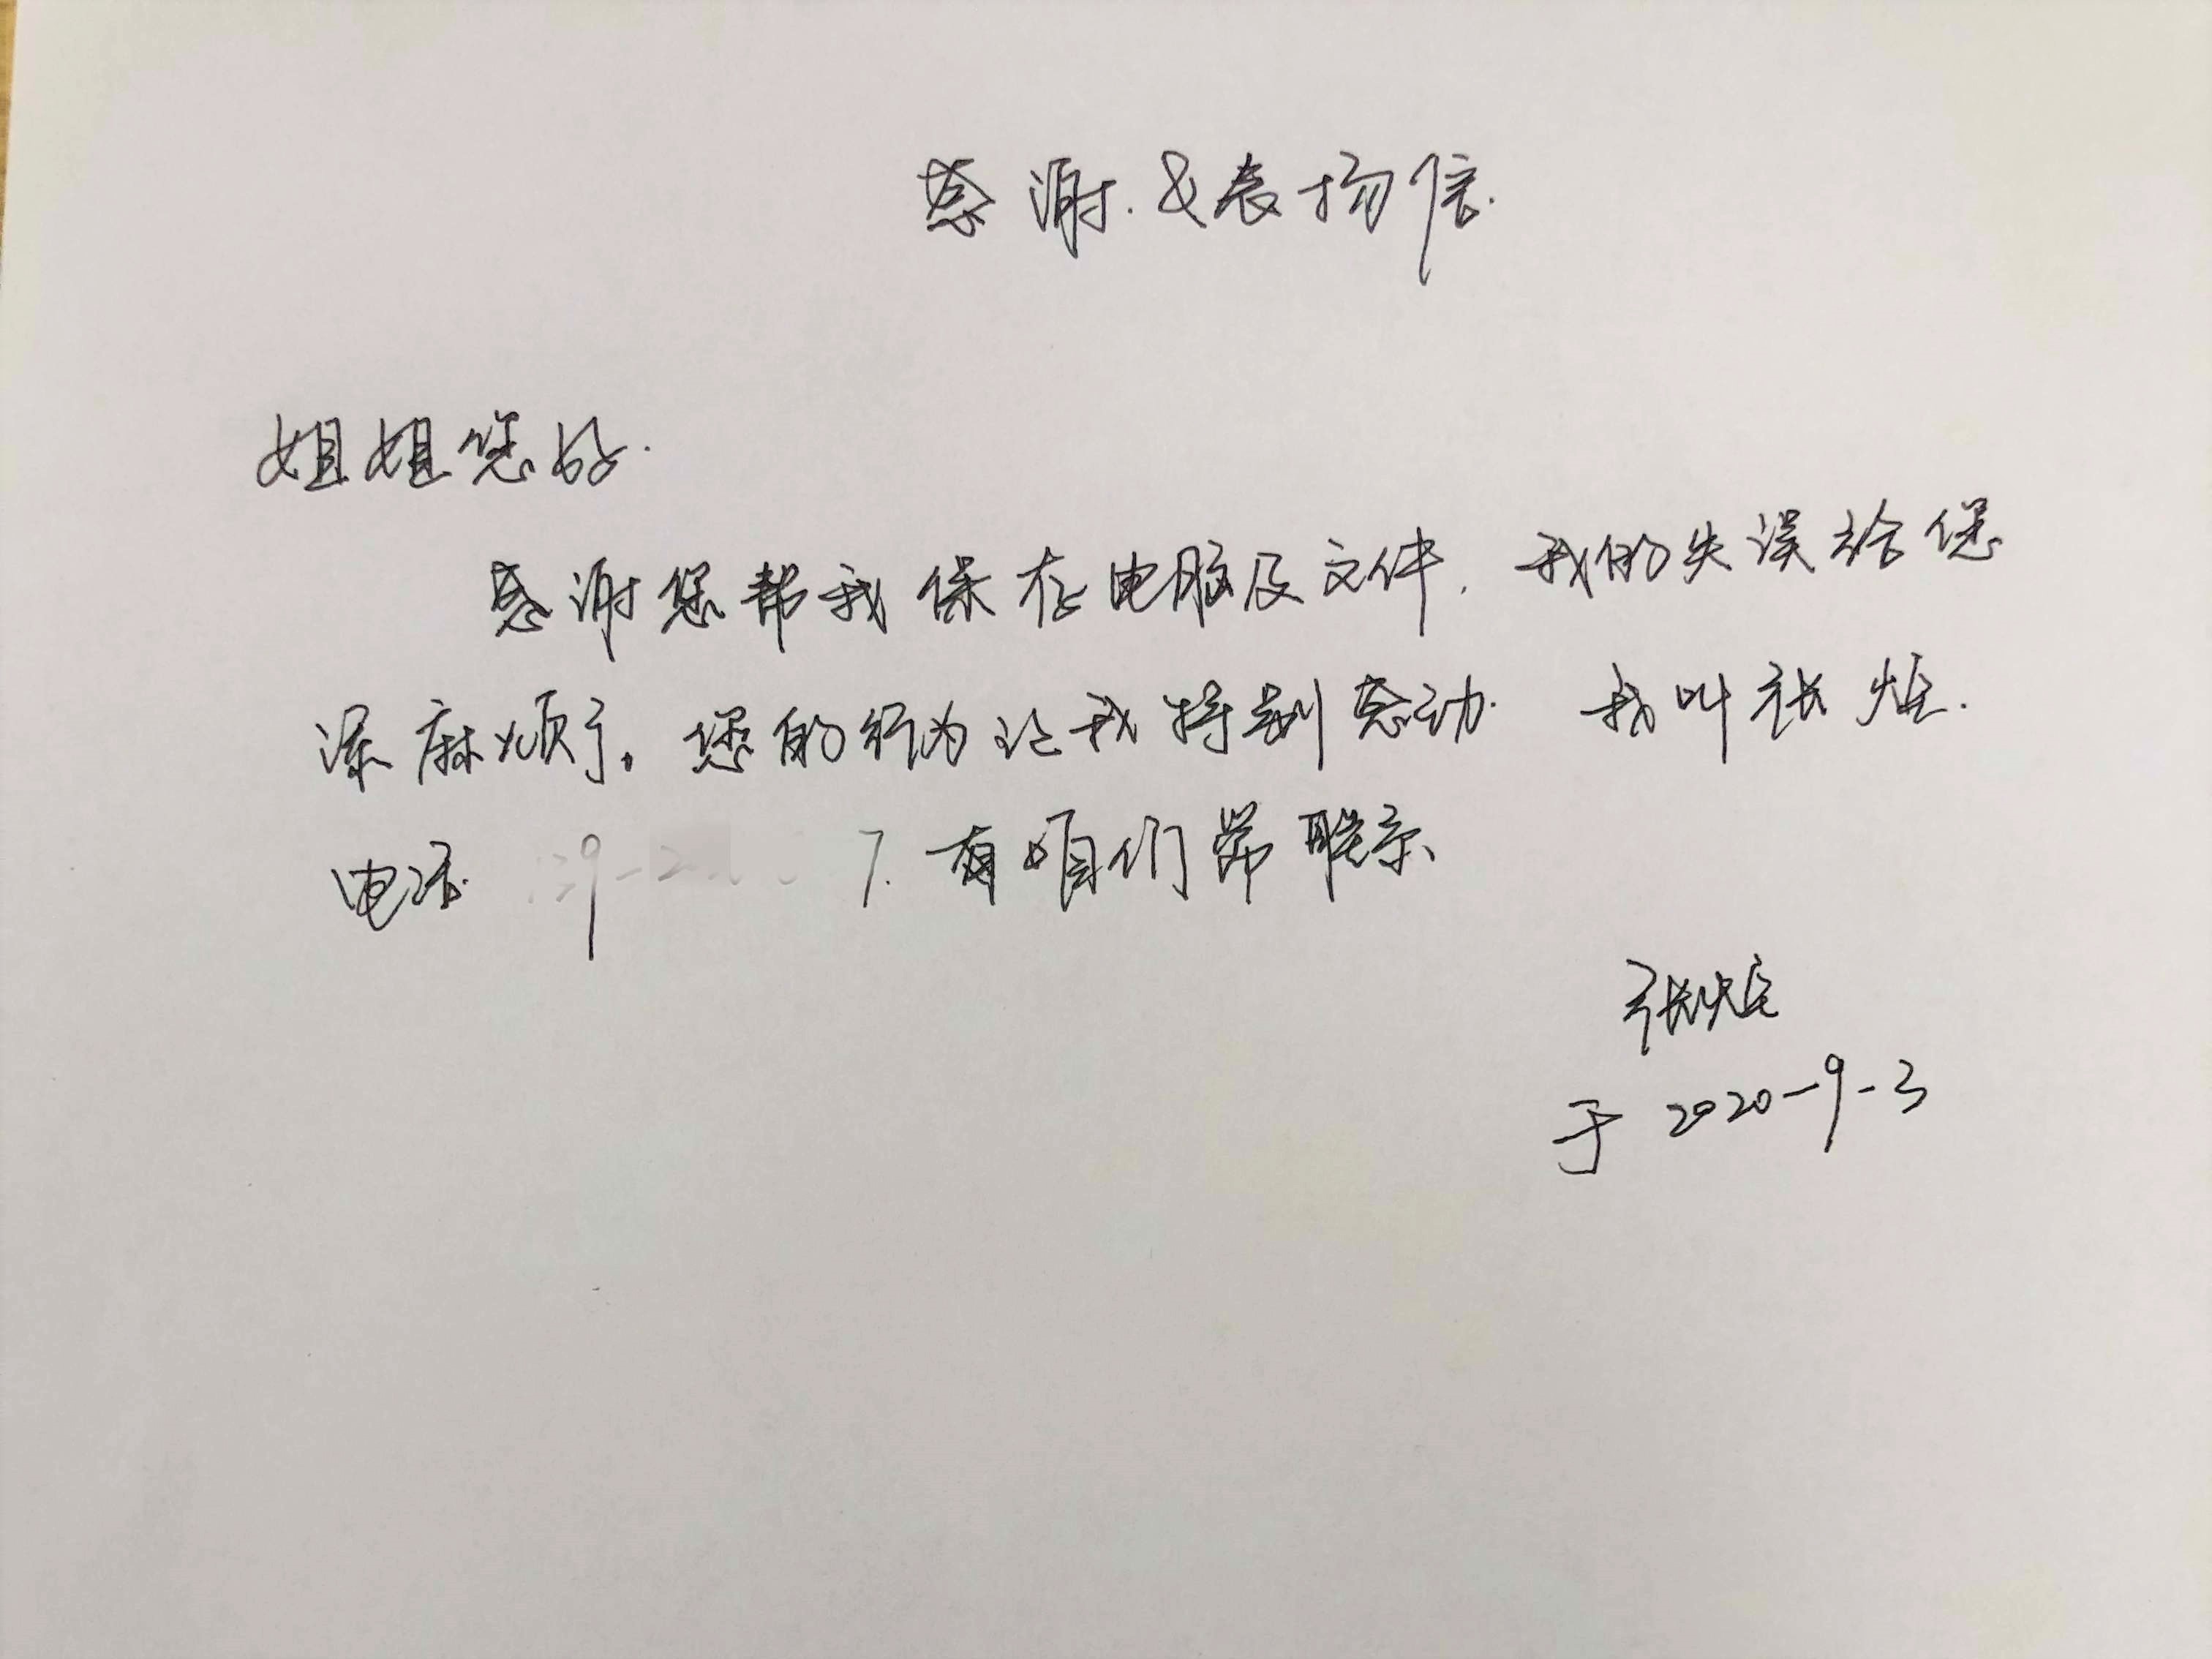 感谢.&表扬信.
姐姐您好.
感谢您帮我保存电脑及文件,我的失误给您
添麻烦了。您的行为让我特别感动.我叫张
电话 7.有咱们常联系
张
于2020-9-3